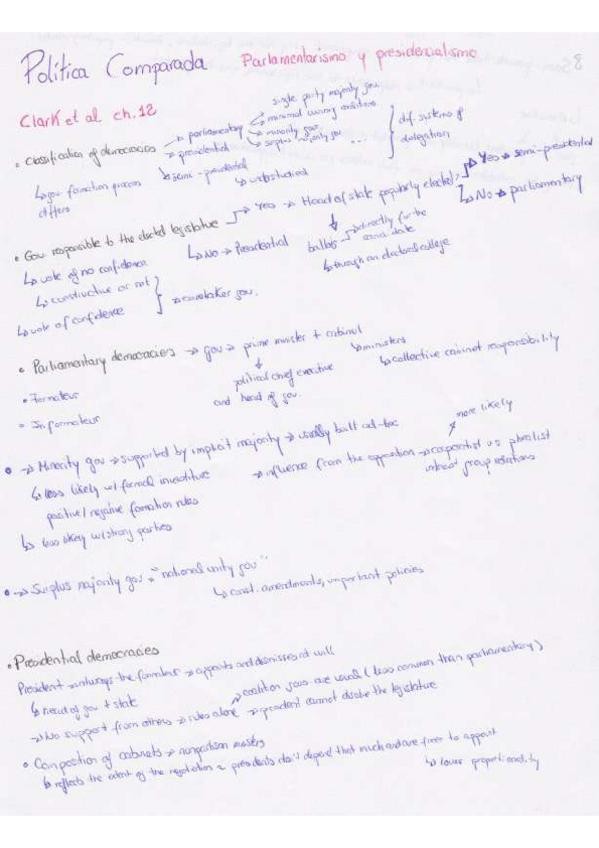 Política Comparada Parlamentarismo y presidencialismo
Clark et al ch.12
single party majority gov.
minimal winning coalitions
• Classification of democracies → parliamentary → minority gov. dif. systems of
→ presidential → surplus majority gov ... delegation
↳ semi-presidential ↳ understudied
↳ gov formation process
differs
• Gov responsible to the elected legislature → Yes → Head of state popularly elected → Yes → semi-presidential
↳ No → parliamentary
↳ No → Presidential
↳ vote of no confidence ballots → directly for the
same date
↳ constructive or not → caretaker gov. ↳ through an electoral college
↳ vote of confidence
• Parliamentary democracies → gov → prime minister + cabinet
↳ ministers
↳ collective cabinet responsibility
political chief executive
and head of gov.
• Formateur
• Informateur
more likely
→ Minority gov → supported by implicit majority → usually built ad-hoc
↳ less likely w/ formal investiture → influence from the opposition → corporatist vs pluralist
positive/negative formation rules interest group relations
↳ less likely w/ strong parties
→ Surplus majority gov "national unity gov"
↳ const. amendments, important policies
• Presidential democracies
President → always the formateur → appoints and dismisses at will
↳ head of gov + state coalition govs are usual (less common than parliamentary)
→ No support from others → rules alone → president cannot disolve the legislature
• Composition of cabinets → nonpartisan ministers
↳ reflects the extent of the negotiation presidents don't depend that much and are freer to appoint
↳ lower proportionality